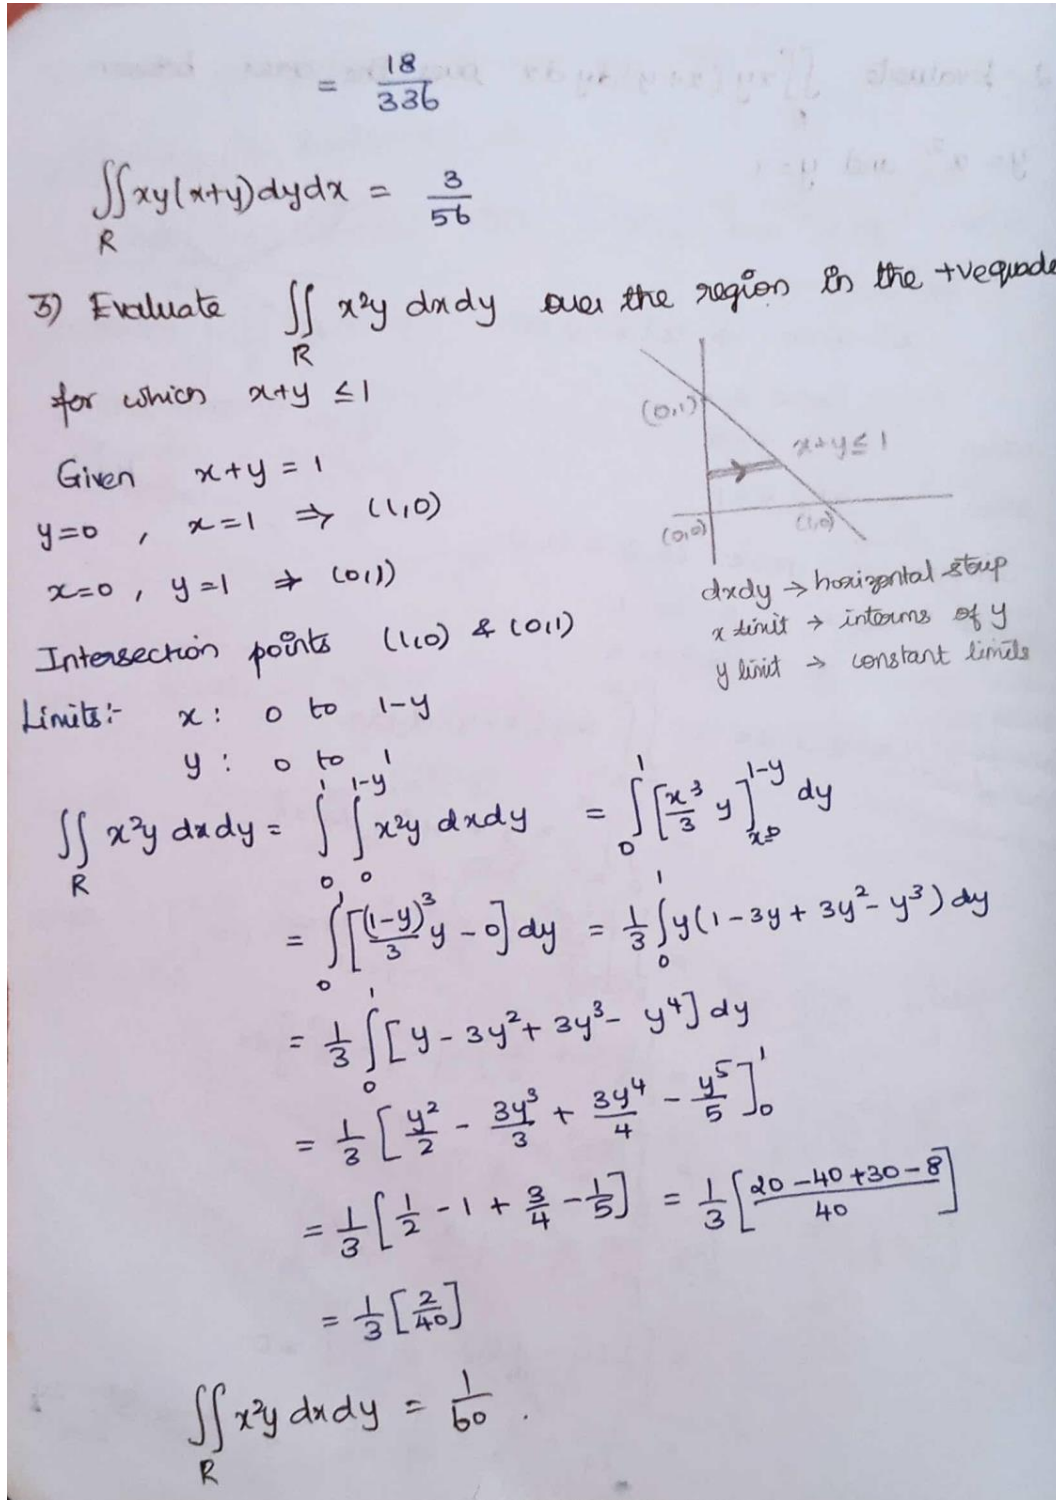 = 18/336
∬_R xy(x+y)dydx = 3/56
3) Evaluate ∬_R x²y dxdy over the region in the +ve quad
for which x+y ≤ 1
(0,1)
x+y ≤ 1
(0,0)
(1,0)
Given x+y = 1
y=0 , x=1 ⇒ (1,0)
x=0 , y=1 ⇒ (0,1)
dxdy → horizontal strip
x limit → interms of y
y limit → constant limits
Intersection points (1,0) & (0,1)
Limits:- x : 0 to 1-y
y : 0 to 1
∬_R x²y dxdy = ∫_0^1 ∫_0^{1-y} x²y dxdy = ∫_0^1 [x³/3 y]_{x=0}^{1-y} dy
= ∫_0^1 [(1-y)³/3 y - 0] dy = 1/3 ∫_0^1 y(1-3y+3y²-y³) dy
= 1/3 ∫_0^1 [y - 3y² + 3y³ - y⁴] dy
= 1/3 [y²/2 - 3y³/3 + 3y⁴/4 - y⁵/5]_0^1
= 1/3 [1/2 - 1 + 3/4 - 1/5] = 1/3 [(20-40+30-8)/40]
= 1/3 [2/40]
∬_R x²y dxdy = 1/60 .